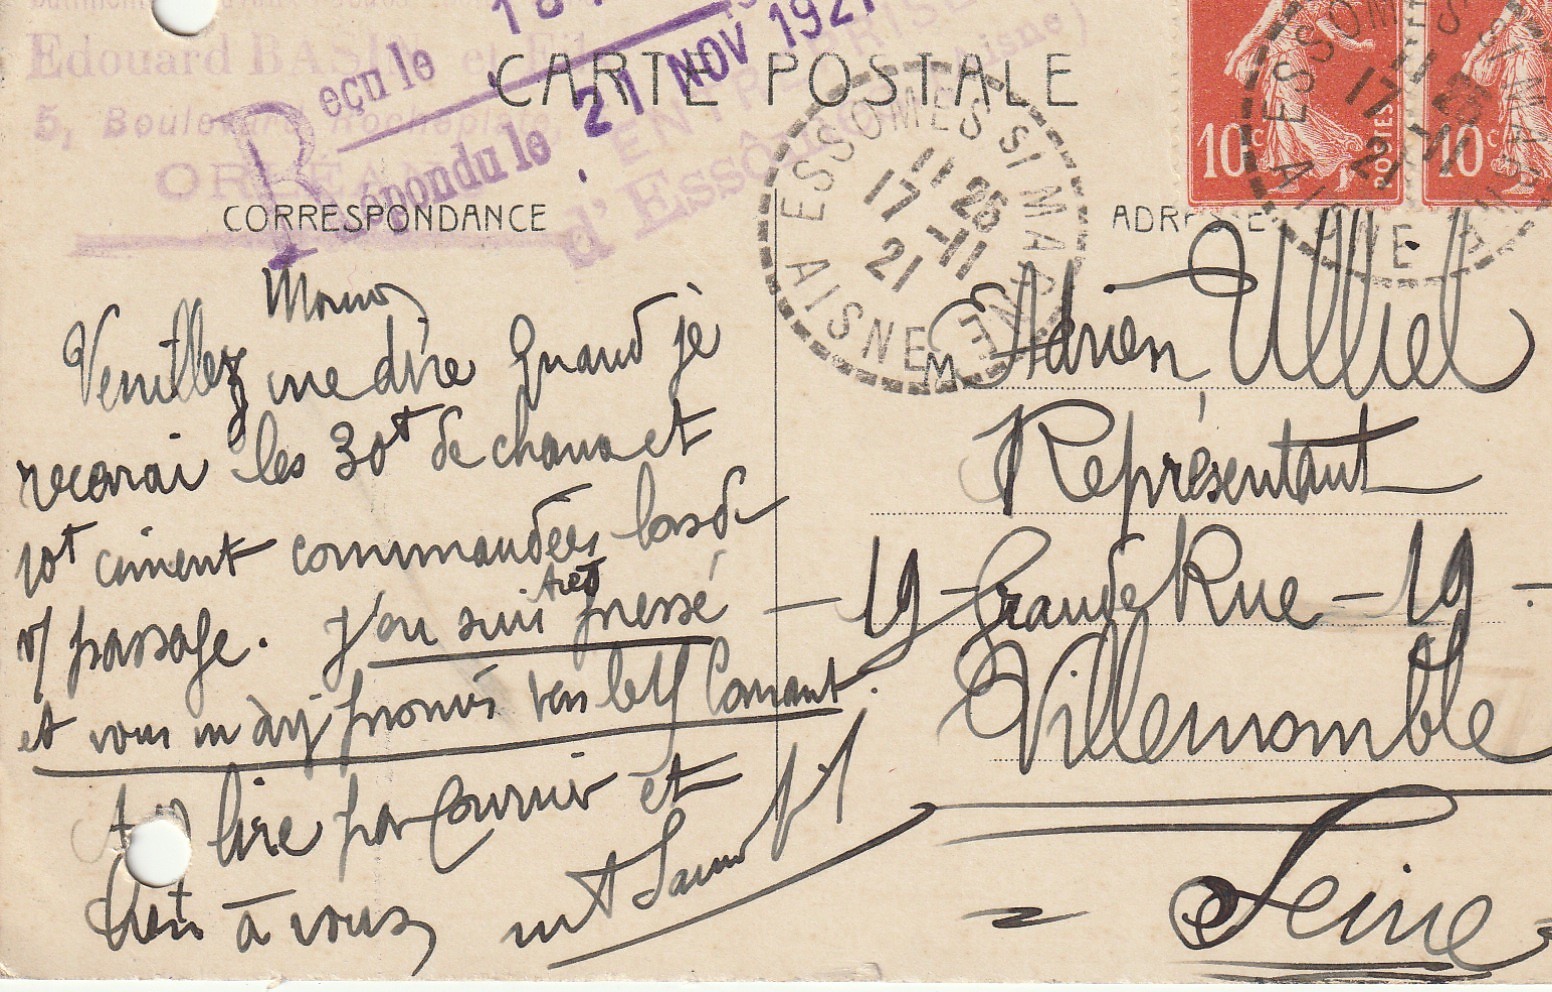 Edouard BASIN et Fils
5, Boulevard Rocheplate,
ORLÉANS
Reçu le
Répondu le 21 NOV 1921
ENTREPRISE
d'Essômes (Aisne)
CARTE POSTALE
CORRESPONDANCE
ADRESSE
10c POSTES
10c
ESSOMES S/ MARNE
11 25
17 -11
21
AISNE
Veuillez me dire quand je
recevrai les 30t de chaux et
10t ciment commandées lors de
v/ passage. J'en suis très pressé
et vous m'aviez promis vers le courant.
lire par Courrier et
bien à vous
M Adrien Ulliel
Représentant
- 19 - Grande Rue - 19 -
Villemomble
Seine